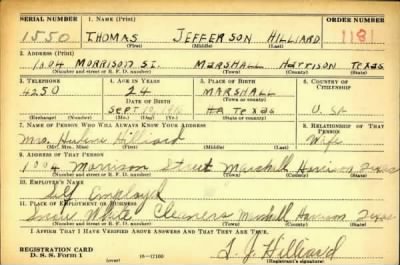 SERIAL NUMBER 1. NAME (Print) ORDER NUMBER
1550 THOMAS JEFFERSON HILLIARD 1181
(First) (Middle) (Last)
2. ADDRESS (Print)
1004 MORRISON ST. MARSHALL HARRISON TEXAS
(Number and street or R. F. D. number) (Town) (County) (State)
3. TELEPHONE 4. AGE IN YEARS 5. PLACE OF BIRTH 6. COUNTRY OF CITIZENSHIP
4250 24 MARSHALL
DATE OF BIRTH (Town or county)
SEPT TEXAS U.SA
(Exchange) (Number) (Mo.) (Day) (Yr.) (State or country)
7. NAME OF PERSON WHO WILL ALWAYS KNOW YOUR ADDRESS 8. RELATIONSHIP OF THAT PERSON
Mrs. Hilliard Wife
(Mr., Mrs., Miss) (First) (Middle) (Last)
9. ADDRESS OF THAT PERSON
1004 Morrison Street Marshall Harrison Texas
(Number and street or R. F. D. number) (Town) (County) (State)
10. EMPLOYER'S NAME
Employed
11. PLACE OF EMPLOYMENT OR BUSINESS
Snow White Cleaners Marshall Harrison Texas
(Number and street or R. F. D. number) (Town) (County) (State)
I AFFIRM THAT I HAVE VERIFIED ABOVE ANSWERS AND THAT THEY ARE TRUE.
REGISTRATION CARD
D. S. S. Form 1 (over) 16—17105 T. J. Hilliard
(Registrant's signature)